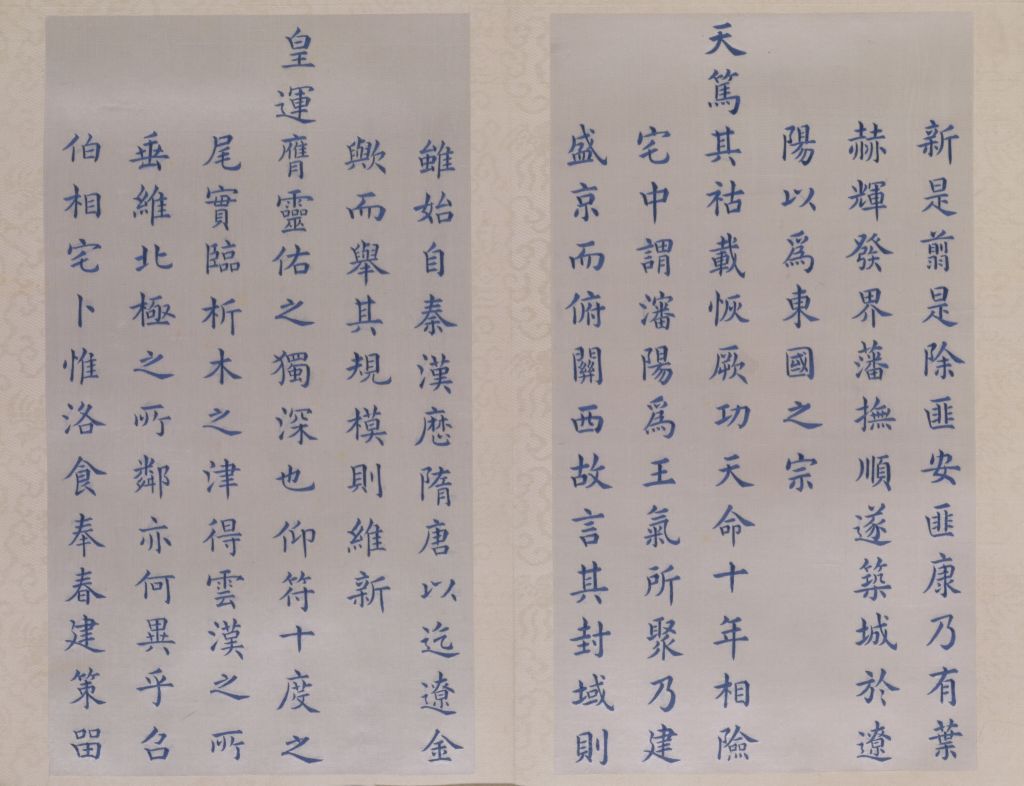 新是翦是除匪安匪康乃有葉
赫輝發界藩撫順遂築城於遼
陽以爲東國之宗
天篤其祜載恢厥功天命十年相險
宅中謂瀋陽爲王氣所聚乃建
盛京而俯關西故言其封域則
雖始自秦漢歷隋唐以迄遼金
歟而舉其規模則維新
皇運膺靈佑之獨深也仰符十度之
尾實臨析木之津得雲漢之所
垂維北極之所鄰亦何異乎召
伯相宅卜惟洛食奉春建策留